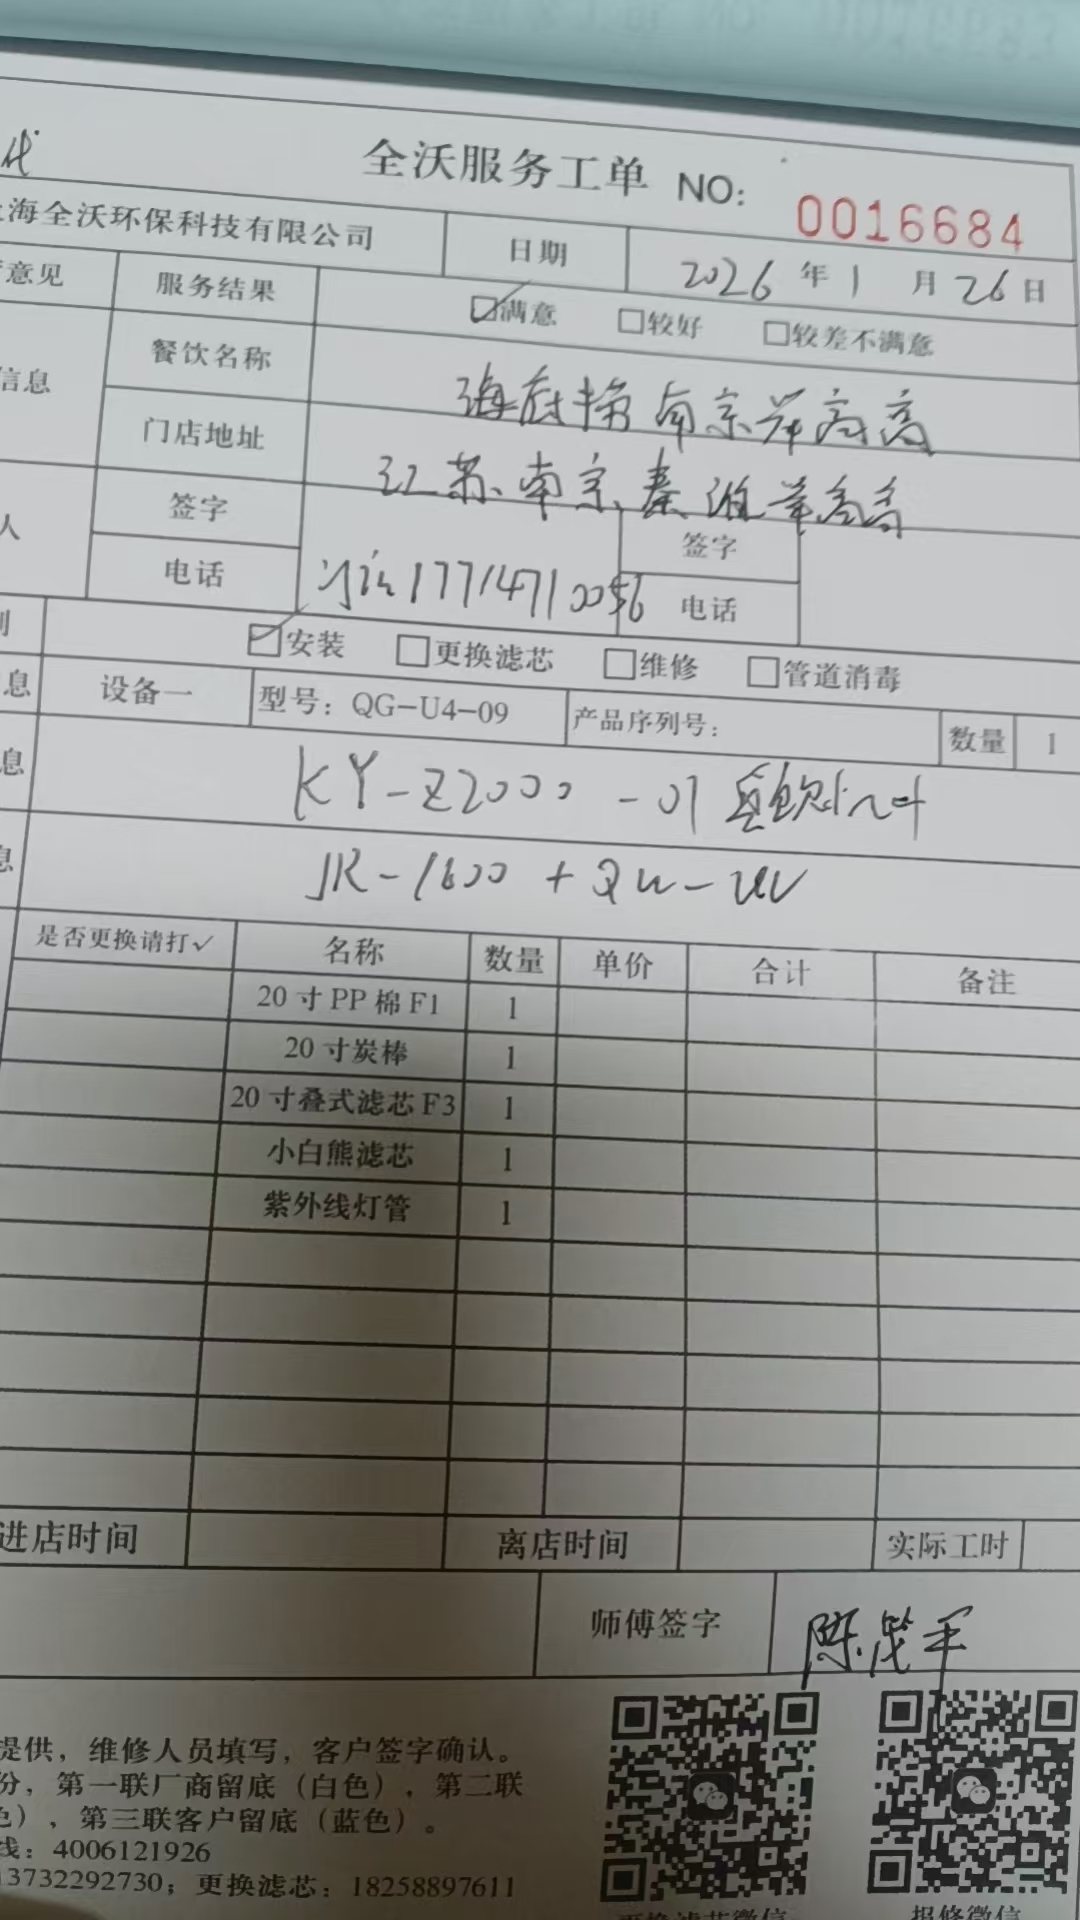 全沃服务工单 NO: 0016684
上海全沃环保科技有限公司 日期 2026年1月26日
意见 服务结果 ☑满意 □较好 □较差不满意
信息 餐饮名称 南京
门店地址 江苏南京秦淮
人 签字 签字
电话 17714710056 电话
别 ☑安装 □更换滤芯 □维修 □管道消毒
息 设备一 型号：QG-U4-09 产品序列号： 数量 1
息 KY-Z2000-01
息 JR-1600+QW-UV
是否更换请打✓ 名称 数量 单价 合计 备注
20寸PP棉F1 1
20寸炭棒 1
20寸叠式滤芯F3 1
小白熊滤芯 1
紫外线灯管 1
进店时间 离店时间 实际工时
师傅签字 陈茂军
提供，维修人员填写，客户签字确认。
份，第一联厂商留底（白色），第二联
色），第三联客户留底（蓝色）。
线：4006121926
13732292730；更换滤芯：18258897611
更换滤芯微信 报修微信